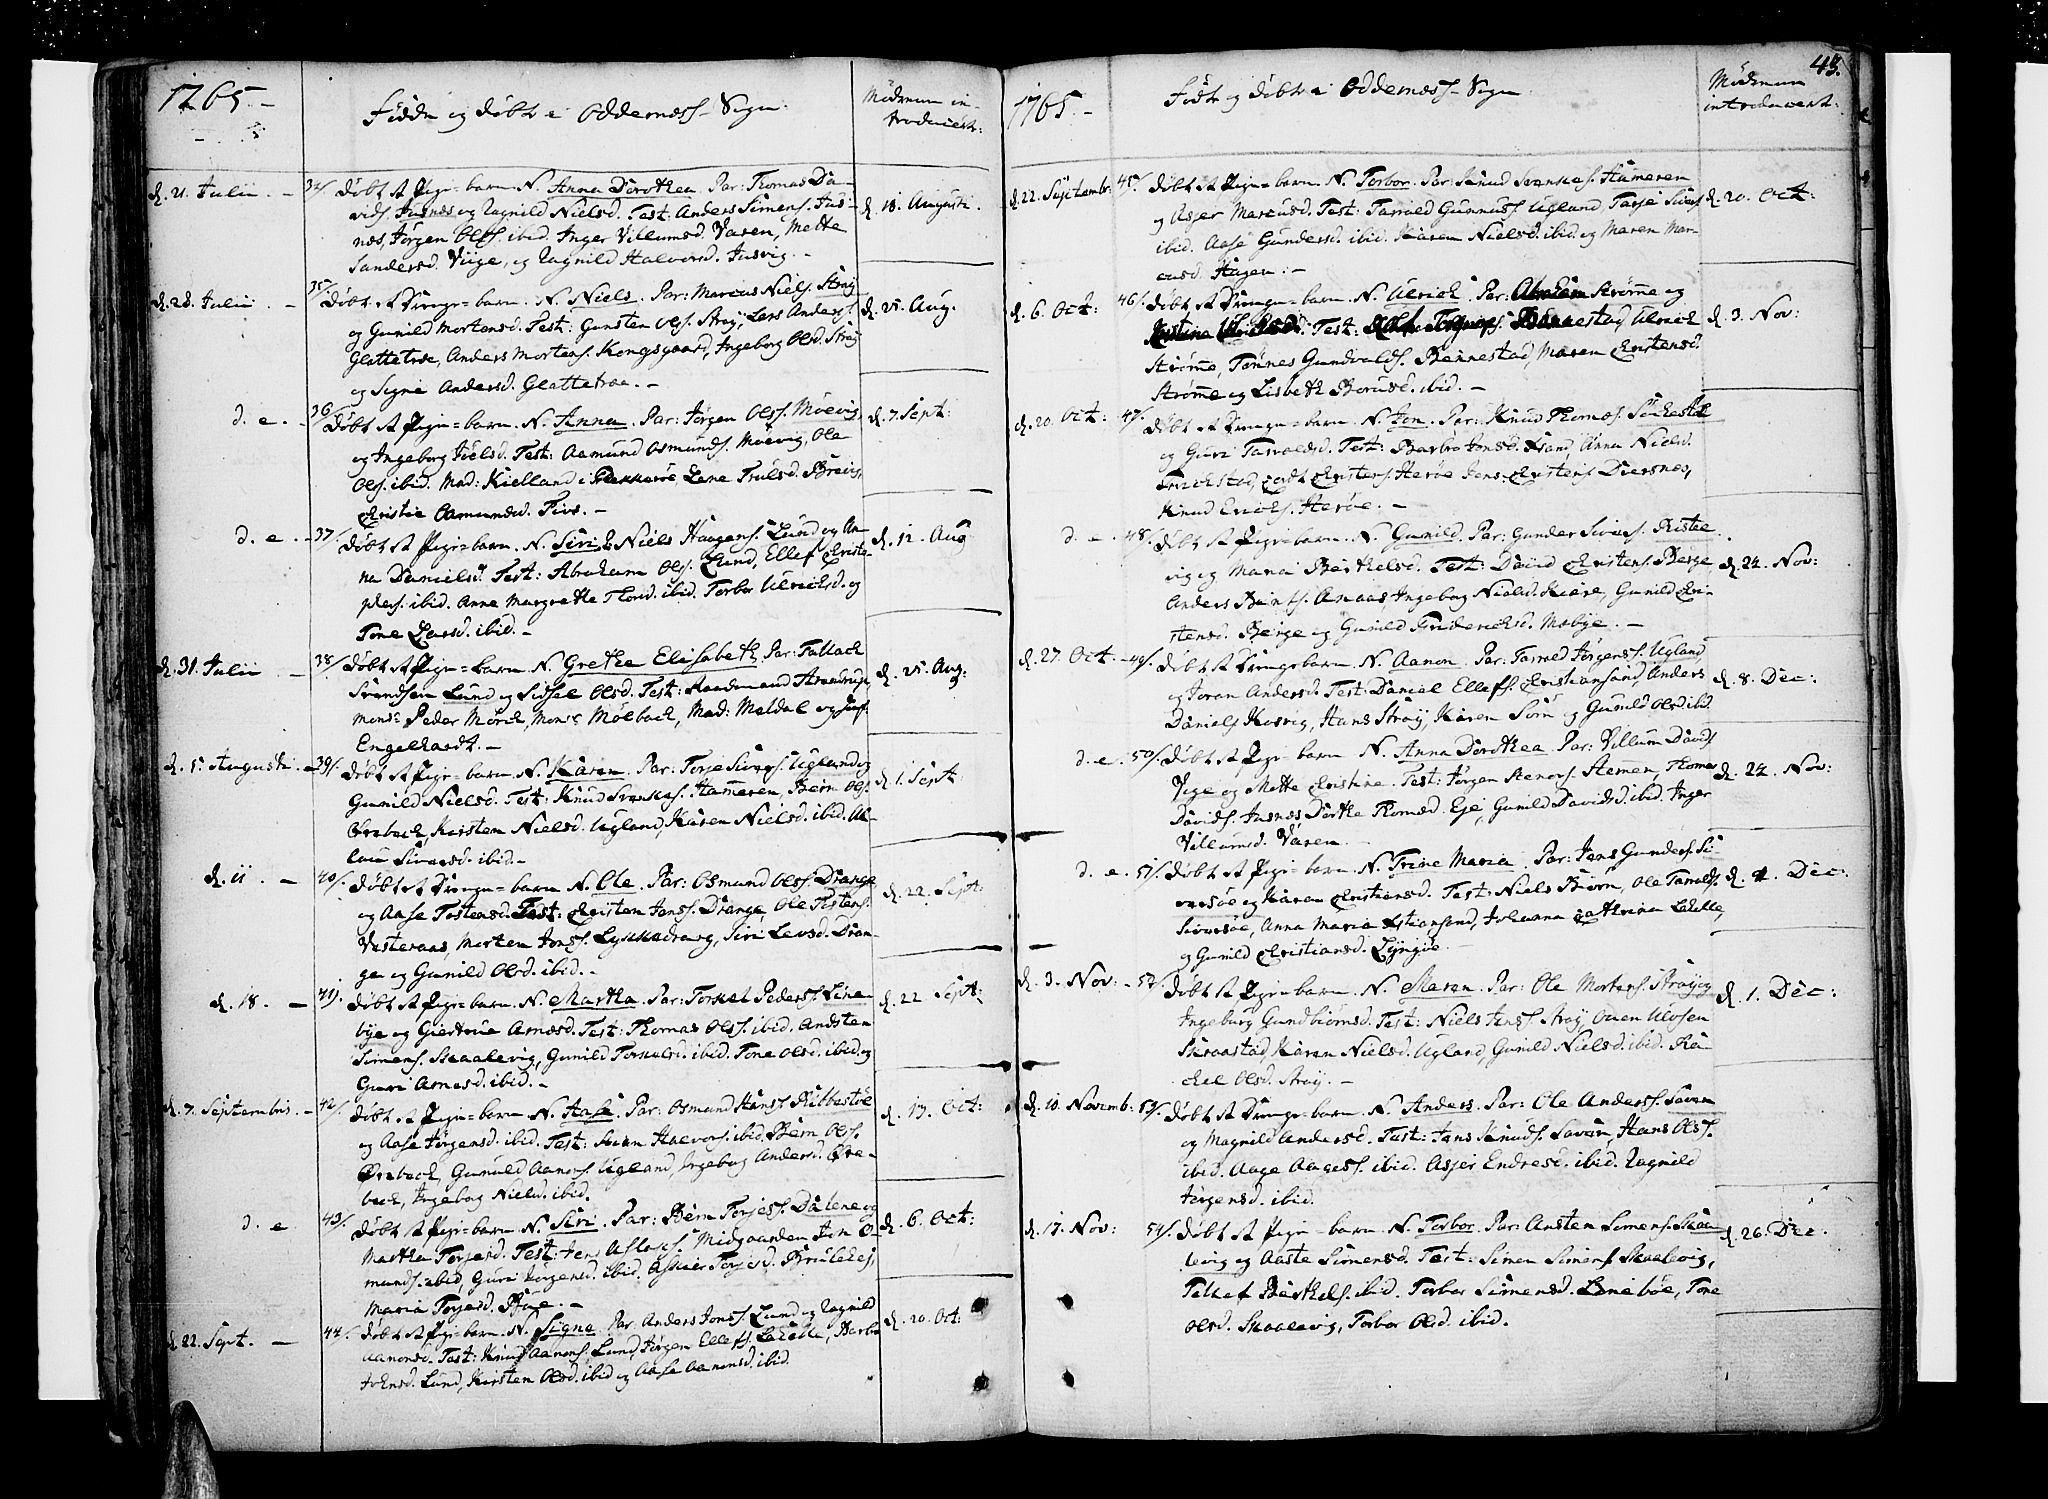 1765. -
Födde og döbte i Oddernæss Sogn.
Mödrenes in-
troducert:
d. 21. Julii -
34/. Döbt et Pige-barn N. Anna Dorothea. Par: Thomas Da-
vids. Justnes og Ragnild Nielsd. Test. Anders Simens. Just-
nes, Jörgen Olss. ibid. Inger Villumsd. Varen, Mette
Sandersd. Viige, og Ragnild Halvorsd. Justvig. -
d. 18. Augusti.
d. 28. Julii -
35/. Döbt et Drenge-barn N. Niels. Par: Marcus Niels. Straÿ
og Gunild Mortensd. Test: Gunsten Ols. Straÿ, Lars Anders.
Glattetræ, Anders Mortens. Kongsgaard, Ingeborg Olsd. Straÿ
og Signe Andersd. Glattetræ. -
d. 25. Aug.
d. e. -
36/. Döbt et Pige-barn N. Anna. Par: Jörgen Olss. Möevig
og Ingeborg Joelsd. Test: Aamund Osmunds. Möevig, Ole
Ols. ibid. Mad: Kielland i Flekkeröe Lene Trulsd. Brevig,
Christie Aamundsd. Tivs. -
d. 7. Sept:
d. e. -
37/. Döbt et Pige-barn N. Siri. P. Niels Haagens. Lund og An-
na Danielsd. Test: Abraham Ols. Lund, Ellef Christo-
phers. ibid. Anne Margrethe Thord. ibid. Torbor Ulrichsd. og
Tone Larsd. ibid. -
d. 12. Aug
d. 31 Julii -
38/. Döbt et Pige-barn N. Grethe Elisabeth. Par: Tallach
Svendsen Lund og Sidsel Olsd. Test: Raadmand Arendrup,
Mons: Peder Mörch, Mons: Mölbach, Mad: Meldal og Jomf.
Engelhardt. -
d. 25. Aug:
d. 5. Augusti. -
39/. Döbt et Pige-barn N. Karen. Par: Torje Sivers. Ugland og
Gunild Nielsd. Test: Knud Svenkes. Hameren, Biörn Ols.
Örebech, Kirsten Nielsd. Ugland, Karen Nielsd. ibid. Al-
lau Siversd. ibid. -
d. 1. Sept
d. 11. -
40/. Döbt et Drenge-barn N. Ole. Par: Osmund Olss. Drange
og Aase Tostensd. Test: Christen Jenss. Drange, Ole Tostens.
Vesteraas, Morten Jonss. Lykkedrang, Siri Levsd. Dran-
ge og Gunild Olsd. ibid. -
d. 22. Sept:
d. 18. -
41/. Döbt et Pige-barn N. Martha. Par: Torkel Pederss. Line-
böe og Giertrue Arnesd. Test: Thomas Olss. ibid. Andsten
Simens. Skaalevig, Gunild Torkelsd. ibid. Tone Olsd. ibid. og
Guri Arnesd. ibid. -
d. 22 Sept:
d. 7. Septembris. -
42/. Döbt et Pige-barn N. Aase. Par: Osmund Hans. Kibbestöe
og Aase Jörgensd. ibid. Test: Svein Halvors. ibid. Biörn Olss.
Örebech, Gunuld Aanons. Ugland, Ingebog Andersd. Öre-
bech, Ingebog Nielsd. ibid.
d. 13. Oct:
d. e
43/. Döbt et Pige-barn N. Siri. Par: Biörn Torjess. Dalene og
Martha Torjesd. Test: Jens Aslaks. Midgaarden Jon O-
munds. ibid, Guri Jörgensd. ibid. Assier Torjesd. Brulehej,
Maria Torjesd. Böe. -
d. 6. Oct:
d. 22. Sept. -
44/. Döbt et Pige-barn N. Signe. Par. Anders Jonss. Lund og Ragnild
Aanonsd. Test: Knud Aanons. Lund, Jörgen Ellefs. Lahelle, Barbro
Johnsd. Lund, Kirsten Olsd. ibid og Aase Aanonsd. ibid.
d. 20. Oct:
43.
1765. -
Födte og döbte i Oddernæss Sogn
Mödrenes
introducert:
d. 22. Septembr:
45/. Döbt et Pige-barn N. Torbor. Par: Knud Svenkes. Hameren
og Asjer Marcusd. Test: Tarrald Gunnufs. Ugland, Torje Sivers.
ibid. Aase Gundersd. ibid. Karen Nielsd. ibid. og Maren Mar-
cusd. Hagen. -
d. 20. Oct:
d. 6. Oct:
46/. Döbt et Drenge-barn N. Ulrich. Par: Abraham Strömme og
Test: Bennestad, Ulrich
Strömme, Tönnes Gundvalds. Bennestad, Maren Christensd.
Strömme og Lisbeth Borusd. ibid. -
d. 3. Nov:
d. 20. Oct:
47/. Döbt et Drenge-barn N. Jon. Par: Knud Thomæs. Suchestad
og Guri Tarraldsd. Test: Barbro Jonsd. Xsand, Anna Nielsd.
Frichstad, Cordt Christens. Heröe Jens Christens. Dversnes,
Knud Erichs. Heröe. -
d. e.
48/. Döbt et Pige-barn N. Gunild. Par: Gunder Sivers. Kiste-
vig og Maria Berthelsd. Test: David Christens. Berge
Anders Bents. Anaas Ingebog Nielsd. Kiære, Gunild Chri-
stensd. Berge og Gunild Friderichsd. Mobye. -
d. 24. Nov:
d. 27. Oct. -
49/. Döbt et Drengebarn N. Aanon. Par: Tarrald Jörgenss. Ugland,
og Joran Andersd. Test: Daniel Ellefs. Christiansand, Anders
Daniels. Kosvig, Hans Straÿ, Karen Sim og Gunild Olsd. ibid.
d. 8. Dec:
d. e.
50/. Döbt et Pige-barn N. Anna Dorothea. Par: Villum Davids.
Vige og Mette Christine. Test: Jörgen Stenors. Stemmen, Thomas
Davids. Justnes Dorthe Thomæd. Eje, Gunild Davidsd. ibid. Inger
Villumsd. Varen. -
d. 24. Nov:
d. e.
51/. Döbt et Pige-barn N. Trine Maria. Par: Jens Gunders. Si-
versöe og Karen Christensd. Test: Niels Biörn, Ole Tarralds.
Siversöe, Anna Maria Xstiansend, Johanna Cathrina Lahelle,
og Gunild Christiansd. Lyngöe. -
d. 1. Dec:
d. 3. Nov: -
52/. Döbt et Pige-barn N. Maren. Par: Ole Mortens. Straÿ og
Ingeburg Gundbiornsd. Test: Niels Jenss. Straÿ, Ouen Ulosen
Skraastad, Karen Nielsd. Ugland, Gunild Nielsd. ibid. Ra-
chel Olsd. Straÿ. -
d. 1. Dec:
d. 10. Novemb:
53/. Döbt et Drenge-barn N. Anders. Par: Ole Anderss. Saven
og Magnild Andersd. Test: Jens Knuds. Saven, Hans Olss.
ibid. Aage Aagess. ibid. Asjer Endresd. ibid. Ragnild
Jörgensd. ibid.
d. 17. Nov:
54/. Döbt et Pige-barn N. Torbor. Par: Ansten Simens. Skaa-
levig og Aaste Simensd. Test: Simen Simens. Skaalevig,
Tellef Berthels. ibid. Torbor Simensd. Lineböe, Tone
Olsd. Skaalevig, Torbor Olsd. ibid.
d. 26. Dec.